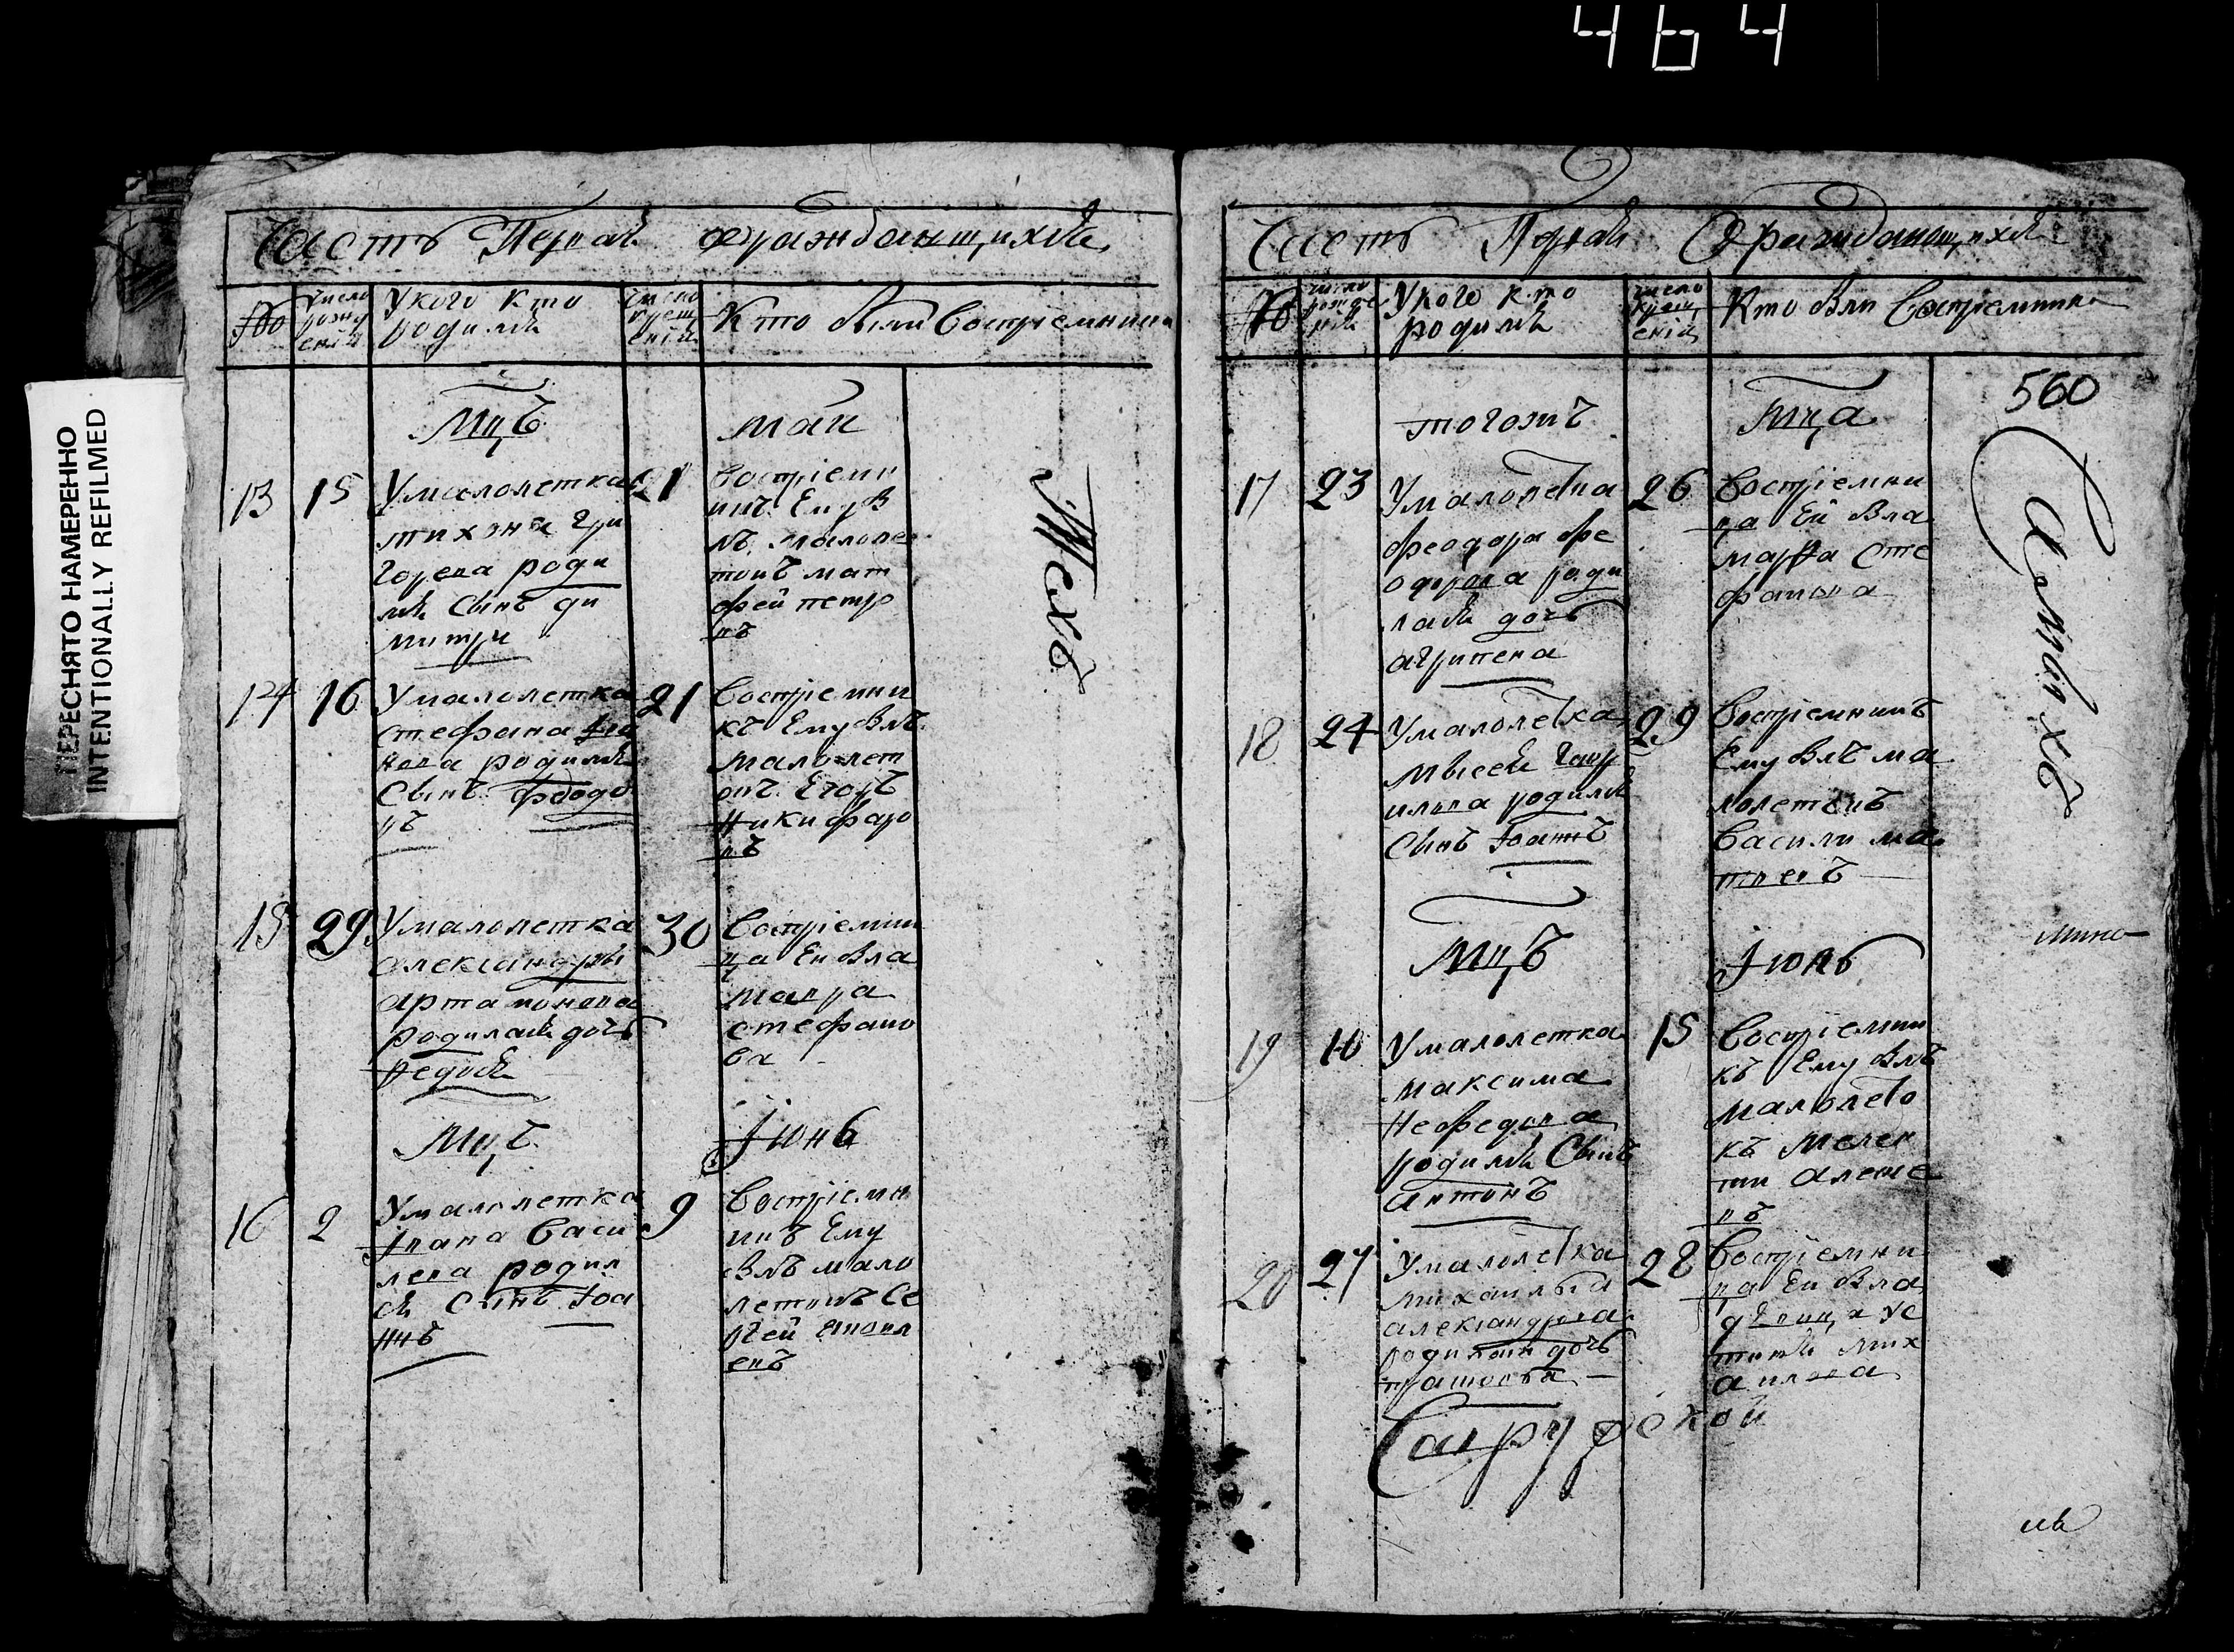 464
ПЕРЕСНЯТО НАМЕРЕННО
INTENTIONALLY REFILMED
Часть Первая ораждающихся
№
число
рожд
ений
У кого кто
родился
число
крещ
ений
Кто были Восприемники
Мцъ
маи
13
15
У малолетка
тихона гри
горева роди
лся сынъ ди
митри
21
Восприем
никъ Ему б
лъ малоле
токъ мат
фей петро
въ
14
16
У малолетка
стефана
нова родился
Сынъ феодо
ръ
21
Восприемни
къ Ему блъ
малолет
окъ Егоръ
Никифаро
въ
15
29
У малолетка
александры
артамонова
родилася дочь
федосья
30
Восприемни
ца Еи бла
мавра
стефано
ва
Мцъ
Июнь
16
2
У малолетка
Iвана Васи
лева родил
ся Сынъ Iоа
ннъ
9
Восприемн
икъ Ему
блъ мало
летокъ Се
ргей
евъ
Техъ
Часть Первая Ораждающихся
№
число
рожде
ния
У кого кто
родился
число
крещ
ения
Кто были Восприемники
560
тогожъ
мца
17
23
У малолетка
феодора фе
одорова роди
лася дочь
агрипена
26
Восприемни
ца Ей бла
марfа Сте
фанова
18
24
У малолетка
Мысея Гавр
илова родился
Сынъ Iоаннъ
29
Восприемникъ
Ему блъ ма
лолетокъ
Василии ма
твеевъ
Самыхъ
Мцъ
Iюнь
19
10
У малолетка
максима
Нефедова
родился Сынъ
антонъ
15
Восприемни
къ Ему блъ
малолето
къ Мелен
тии алеше
въ
20
27
У малолетка
михаилы
александрова
родилася дочь
28
Восприемни
ца Еи бла
девица Ус
тинья мих
аилова